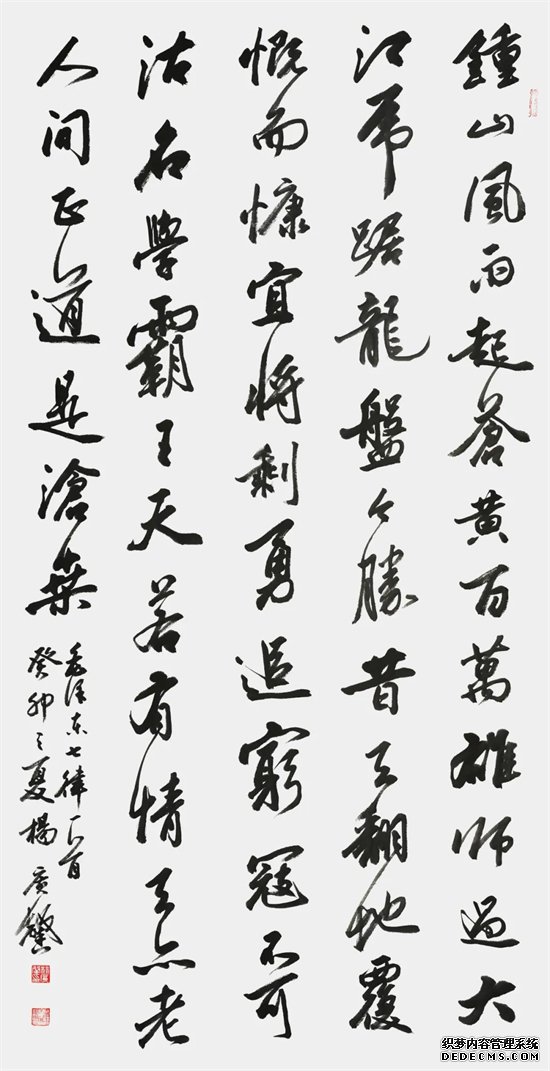 鍾山風雨起蒼黄百萬雄師過大
江虎踞龍盤今勝昔天翻地覆
慨而慷宜将剩勇追窮寇不可
沽名學霸王天若有情天亦老
人间正道是滄桑
毛澤东七律一首
癸卯之夏楊广
织梦内容管理系统
DEDECMS.COM